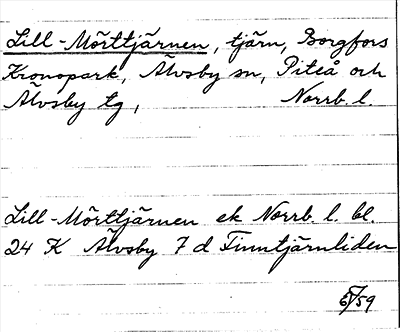 Lill-Mörttjärnen, tjärn, Borgfors
Kronopark, Älvsby sn, Piteå och
Älvsby tg, Norrb. l.
Lill-Mörttjärnen ek Norrb. l. bl.
24 K Älvsby 7 d Finntjärnliden
5/59